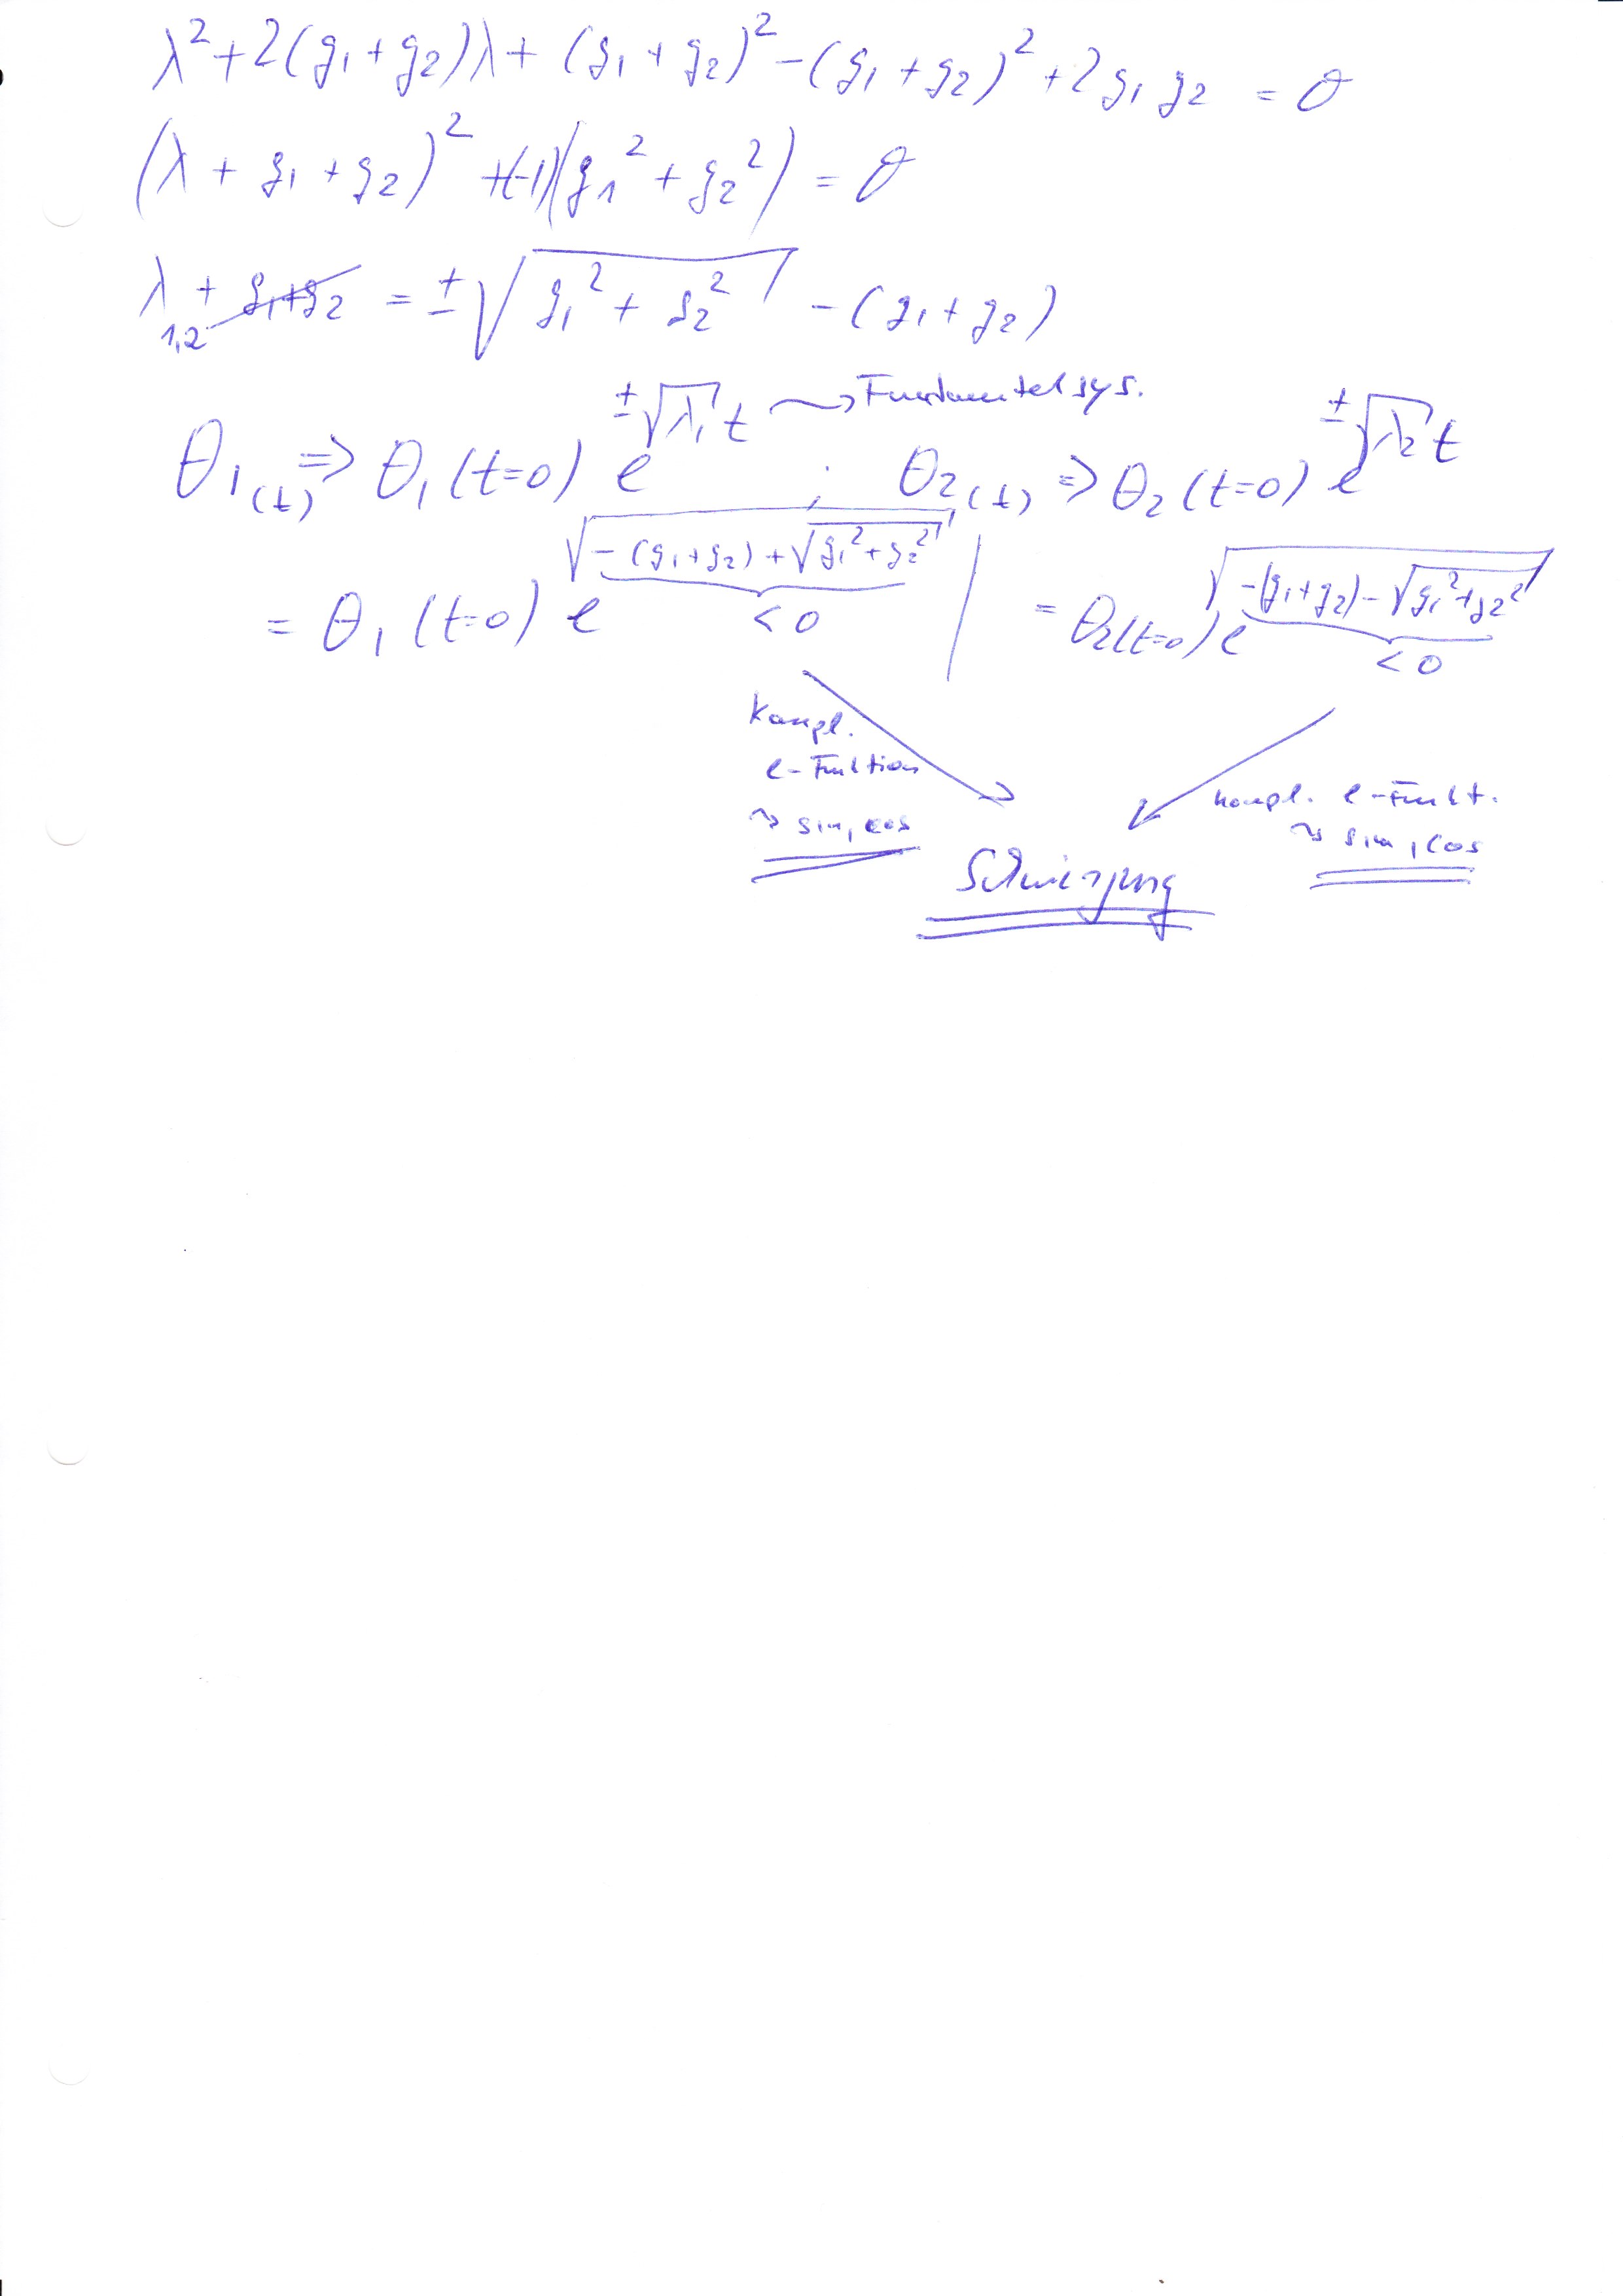 λ² + 2(g₁ + g₂)λ + (g₁ + g₂)² - (g₁ + g₂)² + 2 g₁ g₂ = 0
(λ + g₁ + g₂)² +(-1)(g₁² + g₂²) = 0
λ₁,₂ + g₁+g₂ = ±√(g₁² + g₂²) - (g₁ + g₂)
θ₁(t) => θ₁(t=0) e^(±√λ₁ t) ⤳ Fundamentalsys. ; θ₂(t) => θ₂(t=0) e^(±√λ₂ t)
= θ₁(t=0) e^√(-(g₁+g₂) + √(g₁²+g₂²)) | = θ₂(t=0) e^√(-(g₁+g₂) - √(g₁²+g₂²))
< 0 < 0
Kompl.
e-Funktion
⤳ sin, cos
kompl. e-Funkt.
⤳ sin, cos
Schwingung